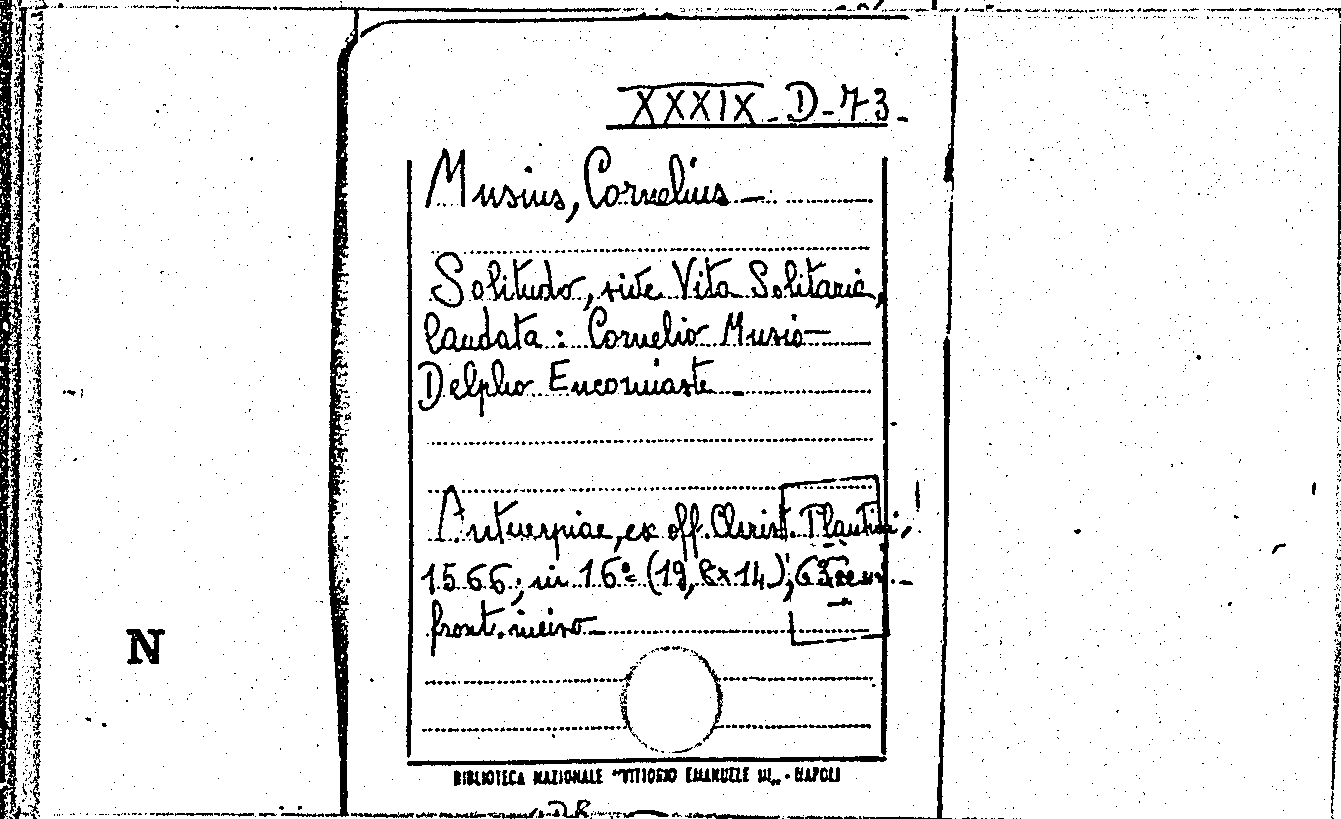 XXXIX-D-73-
Musius, Cornelius -
Solitudo, sive Vita Solitaria,
laudata: Cornelio Musio
Delpho Encomiaste -
Antuerpiae, ex off. Christ. Plantini,
1566; in 16° (19,8x14);
front. inciso -
N
BIBLIOTECA NAZIONALE "VITTORIO EMANUELE III" - NAPOLI